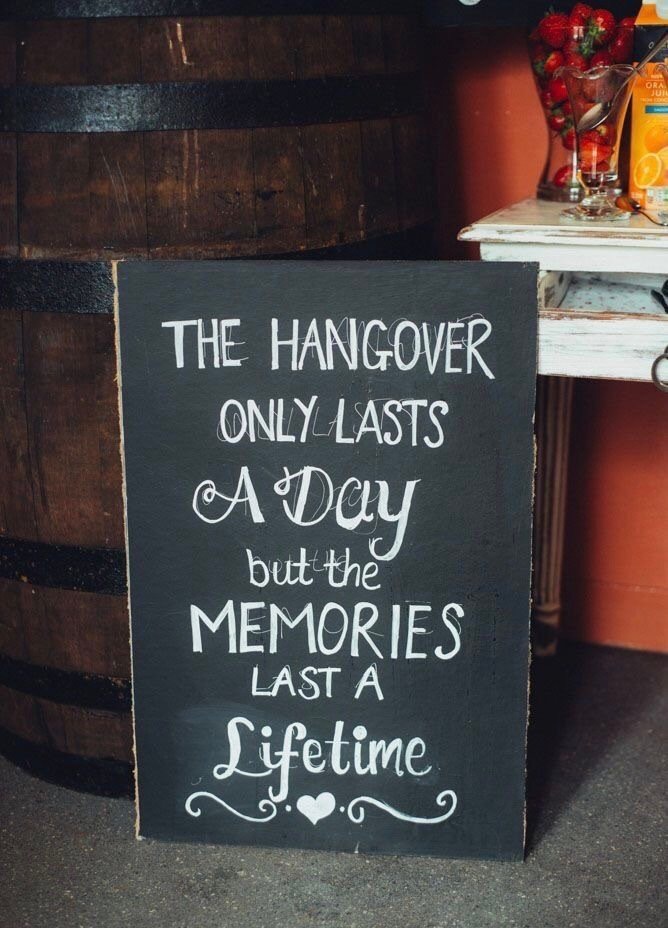 THE HANGOVER
ONLY LASTS
A Day
but the
MEMORIES
LAST A
Lifetime
ORA
JUI